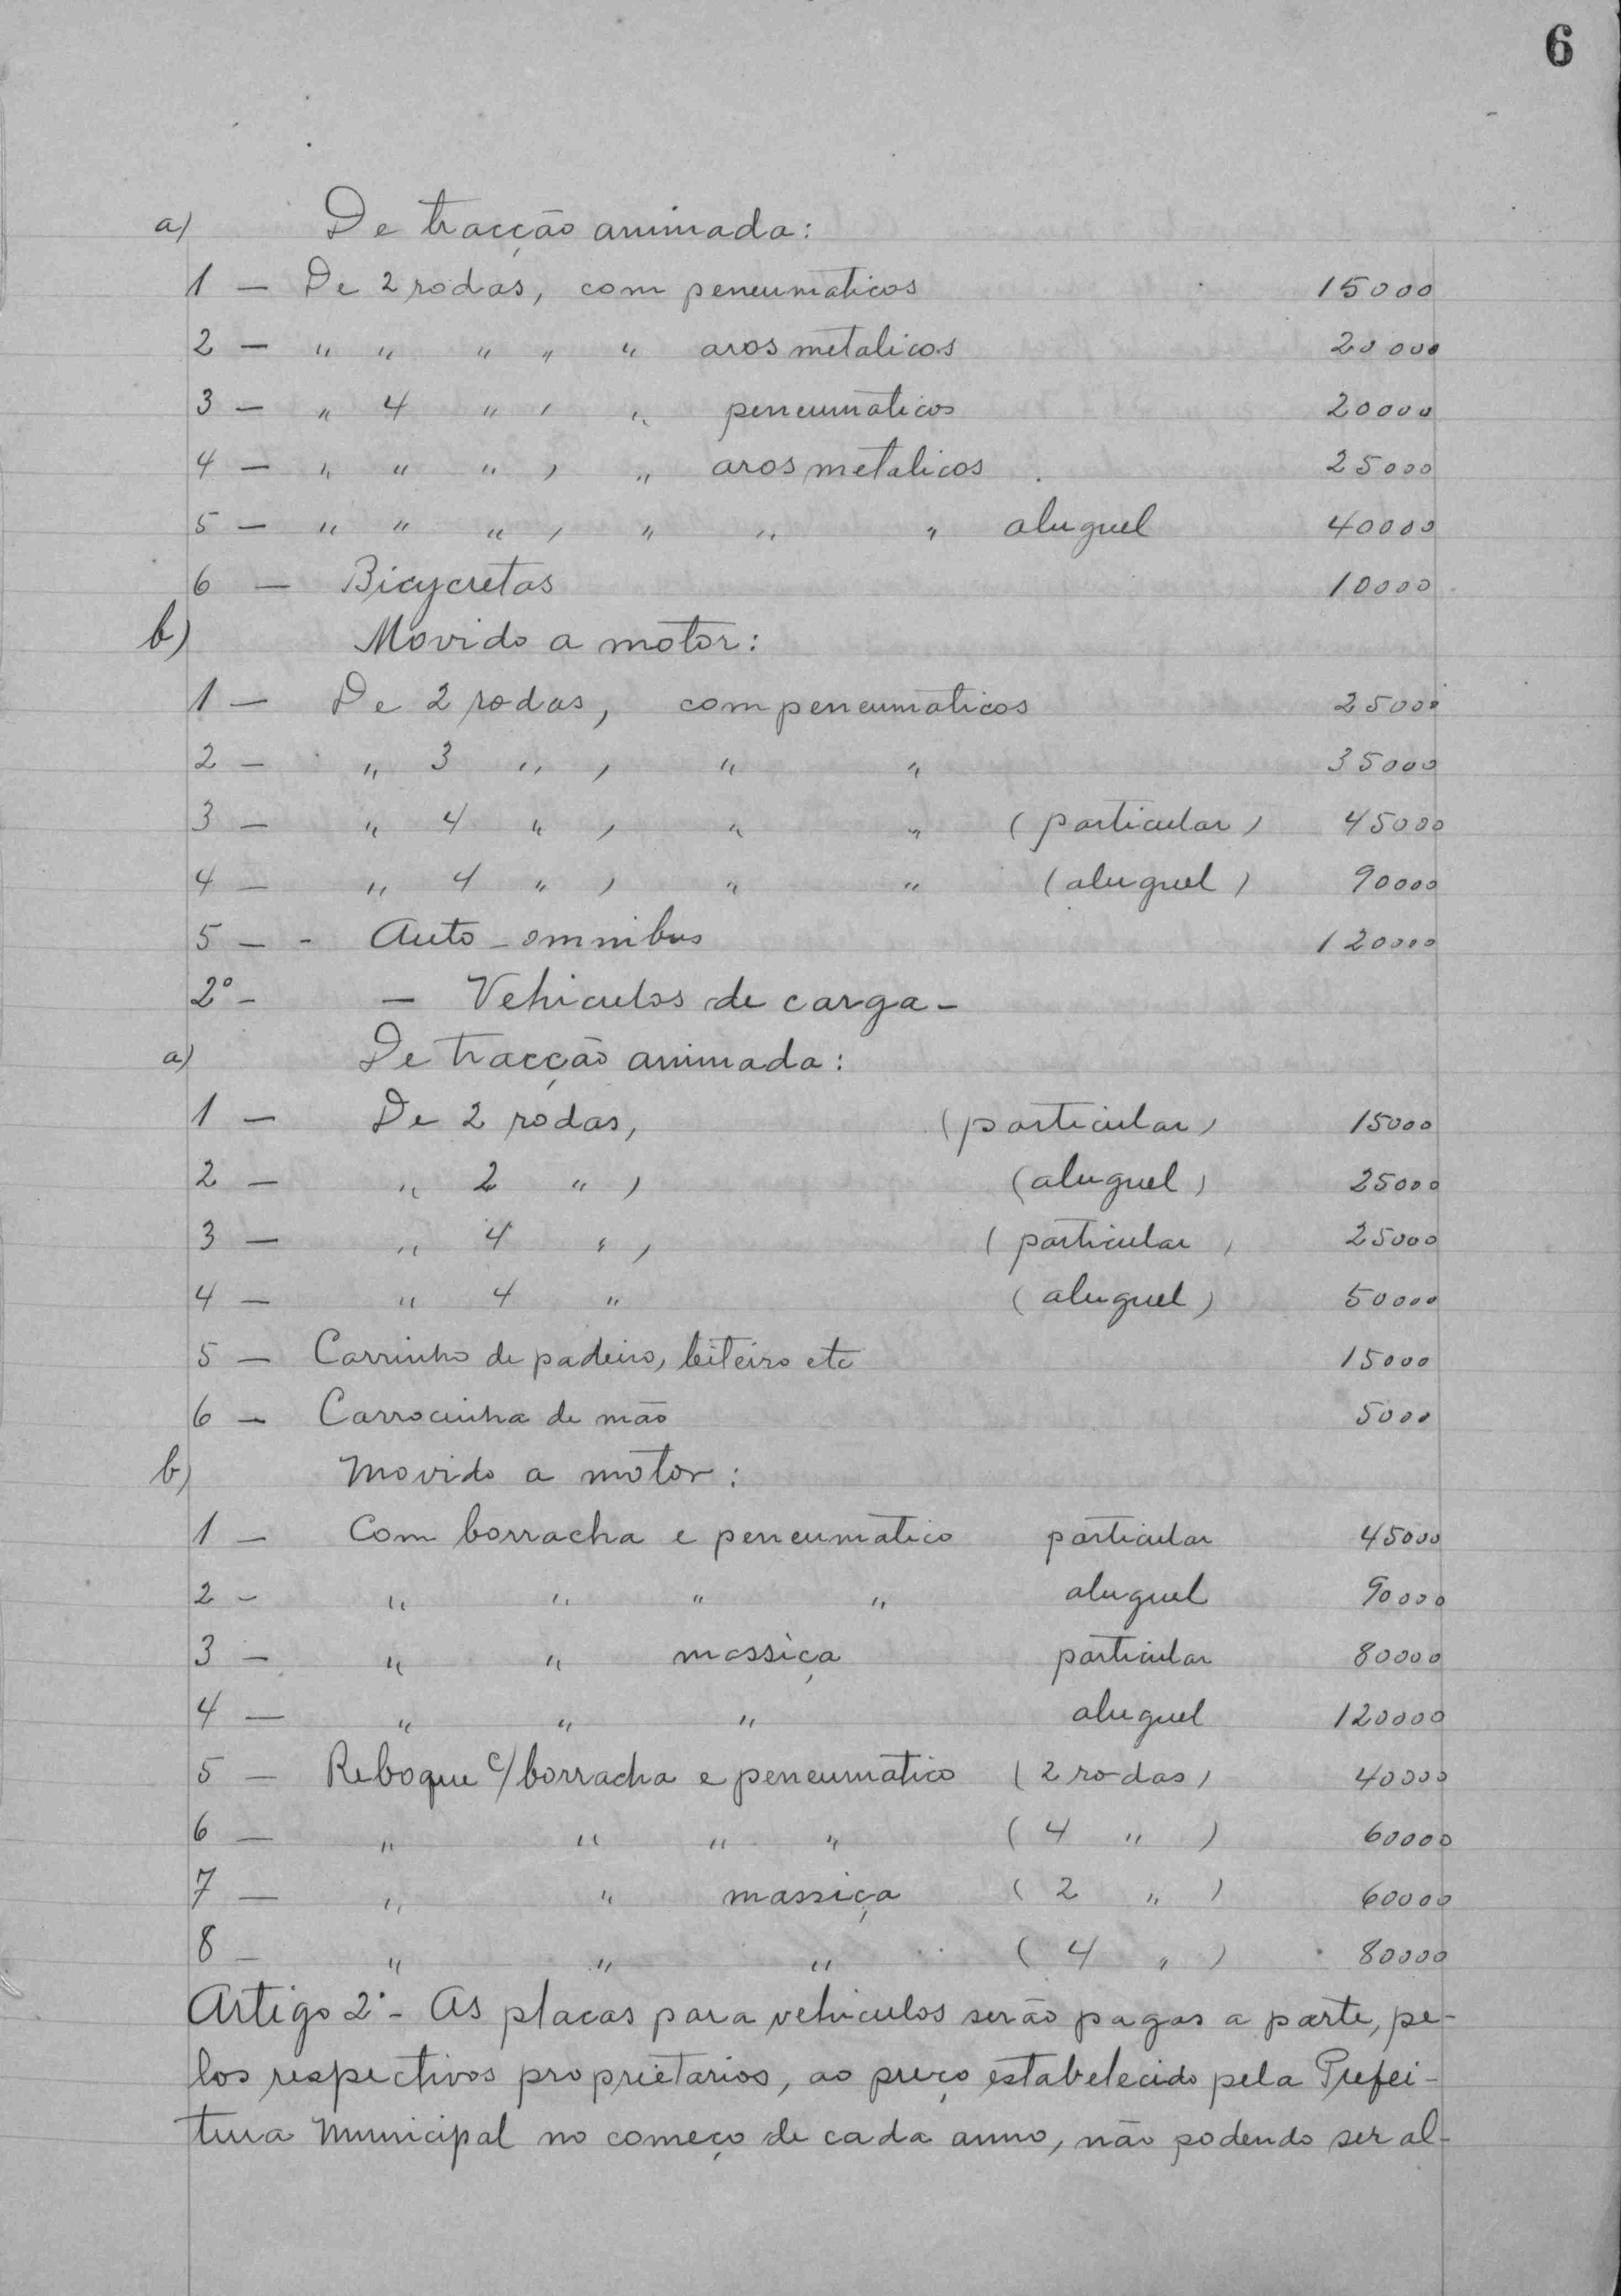 6
a) De tracção animada:
1 — De 2 rodas, com peneumaticos 15000
2 — " " " " " aros metalicos 20000
3 — " 4 " , " peneumaticos 20000
4 — " " " , " aros metalicos 25000
5 — " " " , " " " aluguel 40000
6 — Bicycretas 10000
b) Movido a motor:
1 — De 2 rodas, com peneumaticos 25000
2 — " 3 " , " " 35000
3 — " 4 " , " " (particular) 45000
4 — " 4 " , " " (aluguel) 90000
5 — - Auto-omnibus 120000
2º - — Vehiculos de carga -
a) De tracção animada:
1 — De 2 rodas, (particular) 15000
2 — " 2 " , (aluguel) 25000
3 — " 4 " , (particular) 25000
4 — " 4 " (aluguel) 50000
5 — Carrinho de padeiro, leiteiro etc 15000
6 — Carrocinha de mão 5000
b) Movido a motor:
1 — Com borracha e peneumatico particular 45000
2 - " " " " aluguel 90000
3 — " " massiça particular 80000
4 — " " " aluguel 120000
5 — Reboque c/ borracha e peneumatico (2 rodas) 40000
6 — " " " " (4 " ) 60000
7 — " " massiça (2 " ) 60000
8 — " " " (4 " ) 80000
Artigo 2º - As placas para vehiculos serão pagas a parte, pe-
los respectivos proprietarios, ao preço estabelecido pela Prefei-
tura Municipal no começo de cada anno, não podendo ser al-